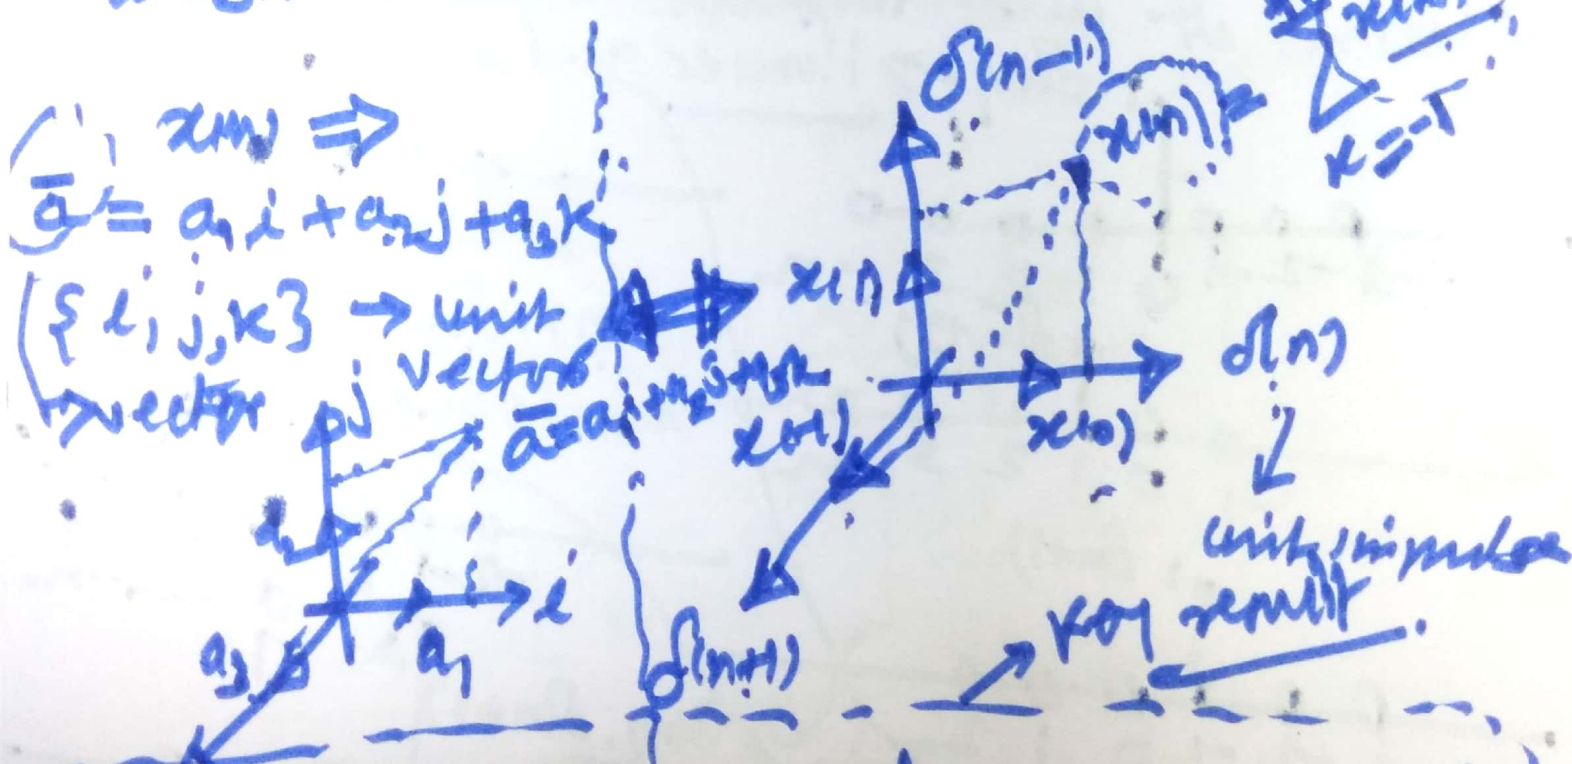 x(n) ⇒
ā = a₁i + a₂j + a₃k
{i, j, k} → unit
vectors
→ vector
j
ā = a₁i + a₂j + a₃k
a₂
i
a₁
a₃
δ(n-1)
x(n) =
x(1)
δ(n)
x(0)
x(-1)
δ(n+1)
k=-1
unit impulse
Key result